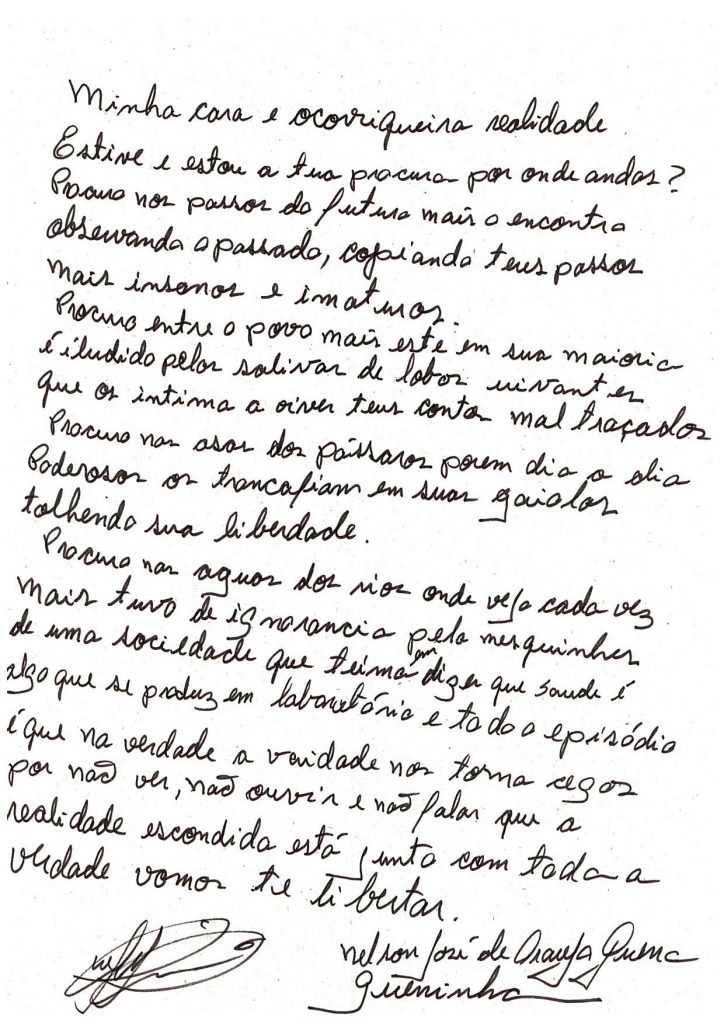 Minha cara e ocorriqueira realidade.
Estive e estou a tua procura por onde andas?
Procuro nos passos do futuro mais o encontro
observando o passado, copiando teus passos
mais insanos e imaturos.
Procuro entre o povo mais este em sua maioria
é iludido pelos salivar de lobos uivantes
que os intima a oiver teus contos mal traçados
Procuro nas asas dos pássaros porem dia a dia
Poderosos os trancafiam em suas gaiolas
tolhendo sua liberdade.
Procuro nas aguas dos rios onde vejo cada vez
mais turvo de ignorancia pela mesquinhes
de uma sociedade que teima em dizer que saude é
algo que se produz em laboratório e todo o episódio
é que na verdade a vaidade nos torna cegos
por não ver, não ouvir e não falar que a
realidade escondida está junto com toda a
verdade vamos te libertar.
Nelson José de Araujo Guerra
Guerrinha